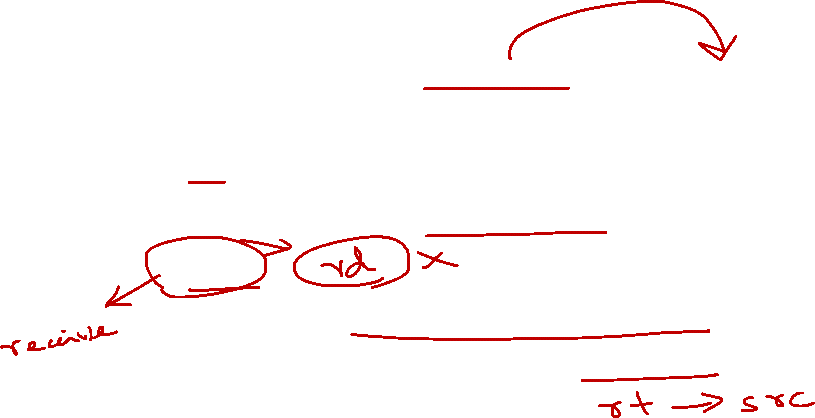 rd ×
receive
rt → src